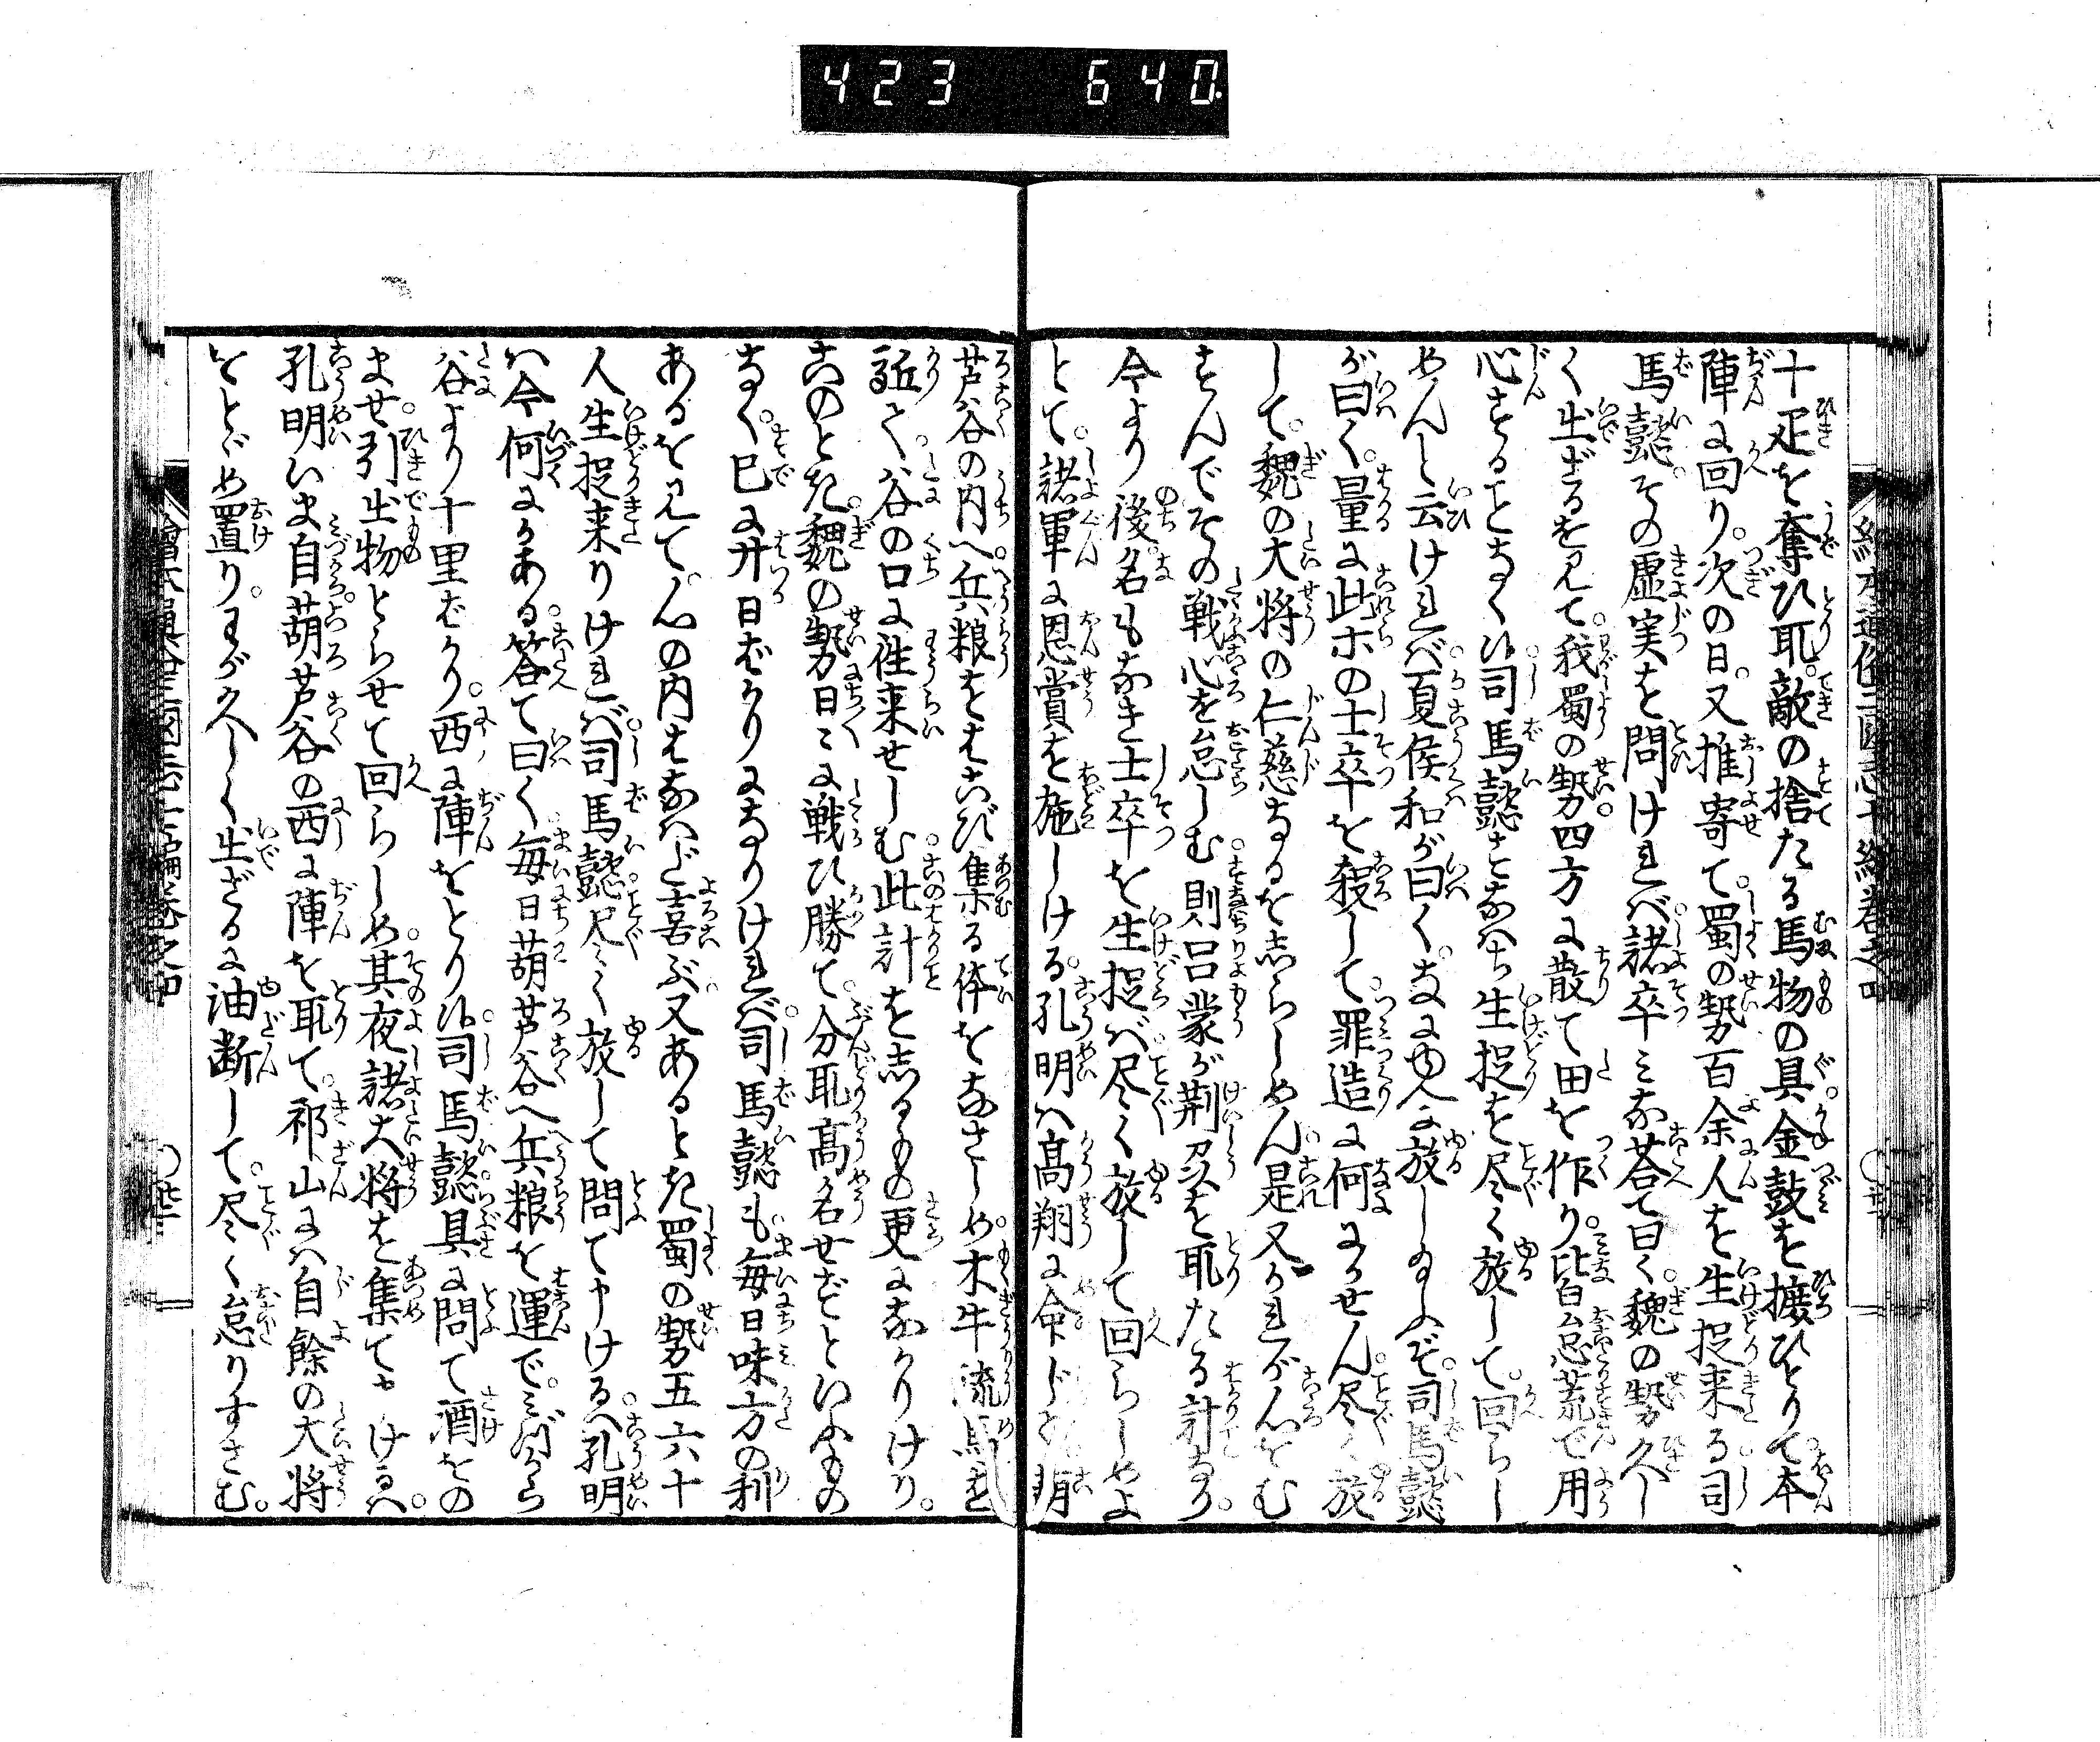 423 640.
十疋を奪ひ取。敵の捨たる馬物の具。金鼓を擄ひとりて。本
陣に回り。次の日。又推寄て。蜀の勢百余人を生捉来る。司
馬懿。その虚実を問ければ。諸卒ミな荅て曰く。魏の勢久し
く出ざるを見て。我蜀の勢。四方に散て田を作り。皆怠荒で用
心することなく候。司馬懿すなハち生捉を尽く放して。回らし
めんと云ければ。夏侯和が曰く。なにゆへに放し給ふぞ。司馬懿
が曰く。量に此ホの士卒を殺して。罪造に何にかせん。尽く放
して。魏の大将の仁慈なるをしらしめん。是又かれが心をむ
すんでその戦心を怠しむ。則呂蒙が荆州を取たる計なり。
今より後。名もなき士卒を生捉バ。尽く放して回らしめよ
とて。諸軍に恩賞を施しける。孔明ハ高翔に命じて。胡
芦谷の内へ。兵粮をはこび集る体をなさしめ。木牛流馬を
駈て。谷の口に往来せしむ。此計をしるもの更になかりけり。
このとき。魏の勢日々に戦ひ勝て。分取高名せずといふもの
なく。已に廾日ばかりになりければ。司馬懿も。毎日味方の利
あるを見て。心の内はなハだ喜ぶ。又あるとき蜀の勢五六十
人生捉来りければ。司馬懿。尽く放して問て申けるハ。孔明
ハ今何にかある。答て曰く。毎日葫芦谷へ兵粮を運で。ミづから
谷より十里ばかり。西に陣をとり候。司馬懿。具に問て酒をの
ませ。引出物とらせて回らしめ。其夜諸大将を集て申けるハ。
孔明いま自葫芦谷の西に陣を取て。祁山にハ自餘の大将
をとゞめ置り。わが久しく出ざるに油断して。尽く怠りすさむ。